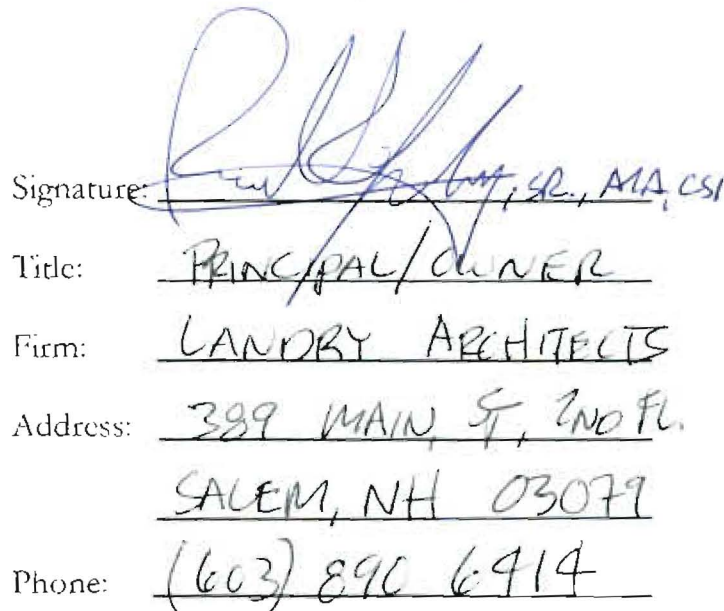 Signature: , SR., AIA, CSI
Title: PRINCIPAL/OWNER
Firm: LANDRY ARCHITECTS
Address: 389 MAIN, ST, 2ND FL.
SALEM, NH 03079
Phone: (603) 890 6414